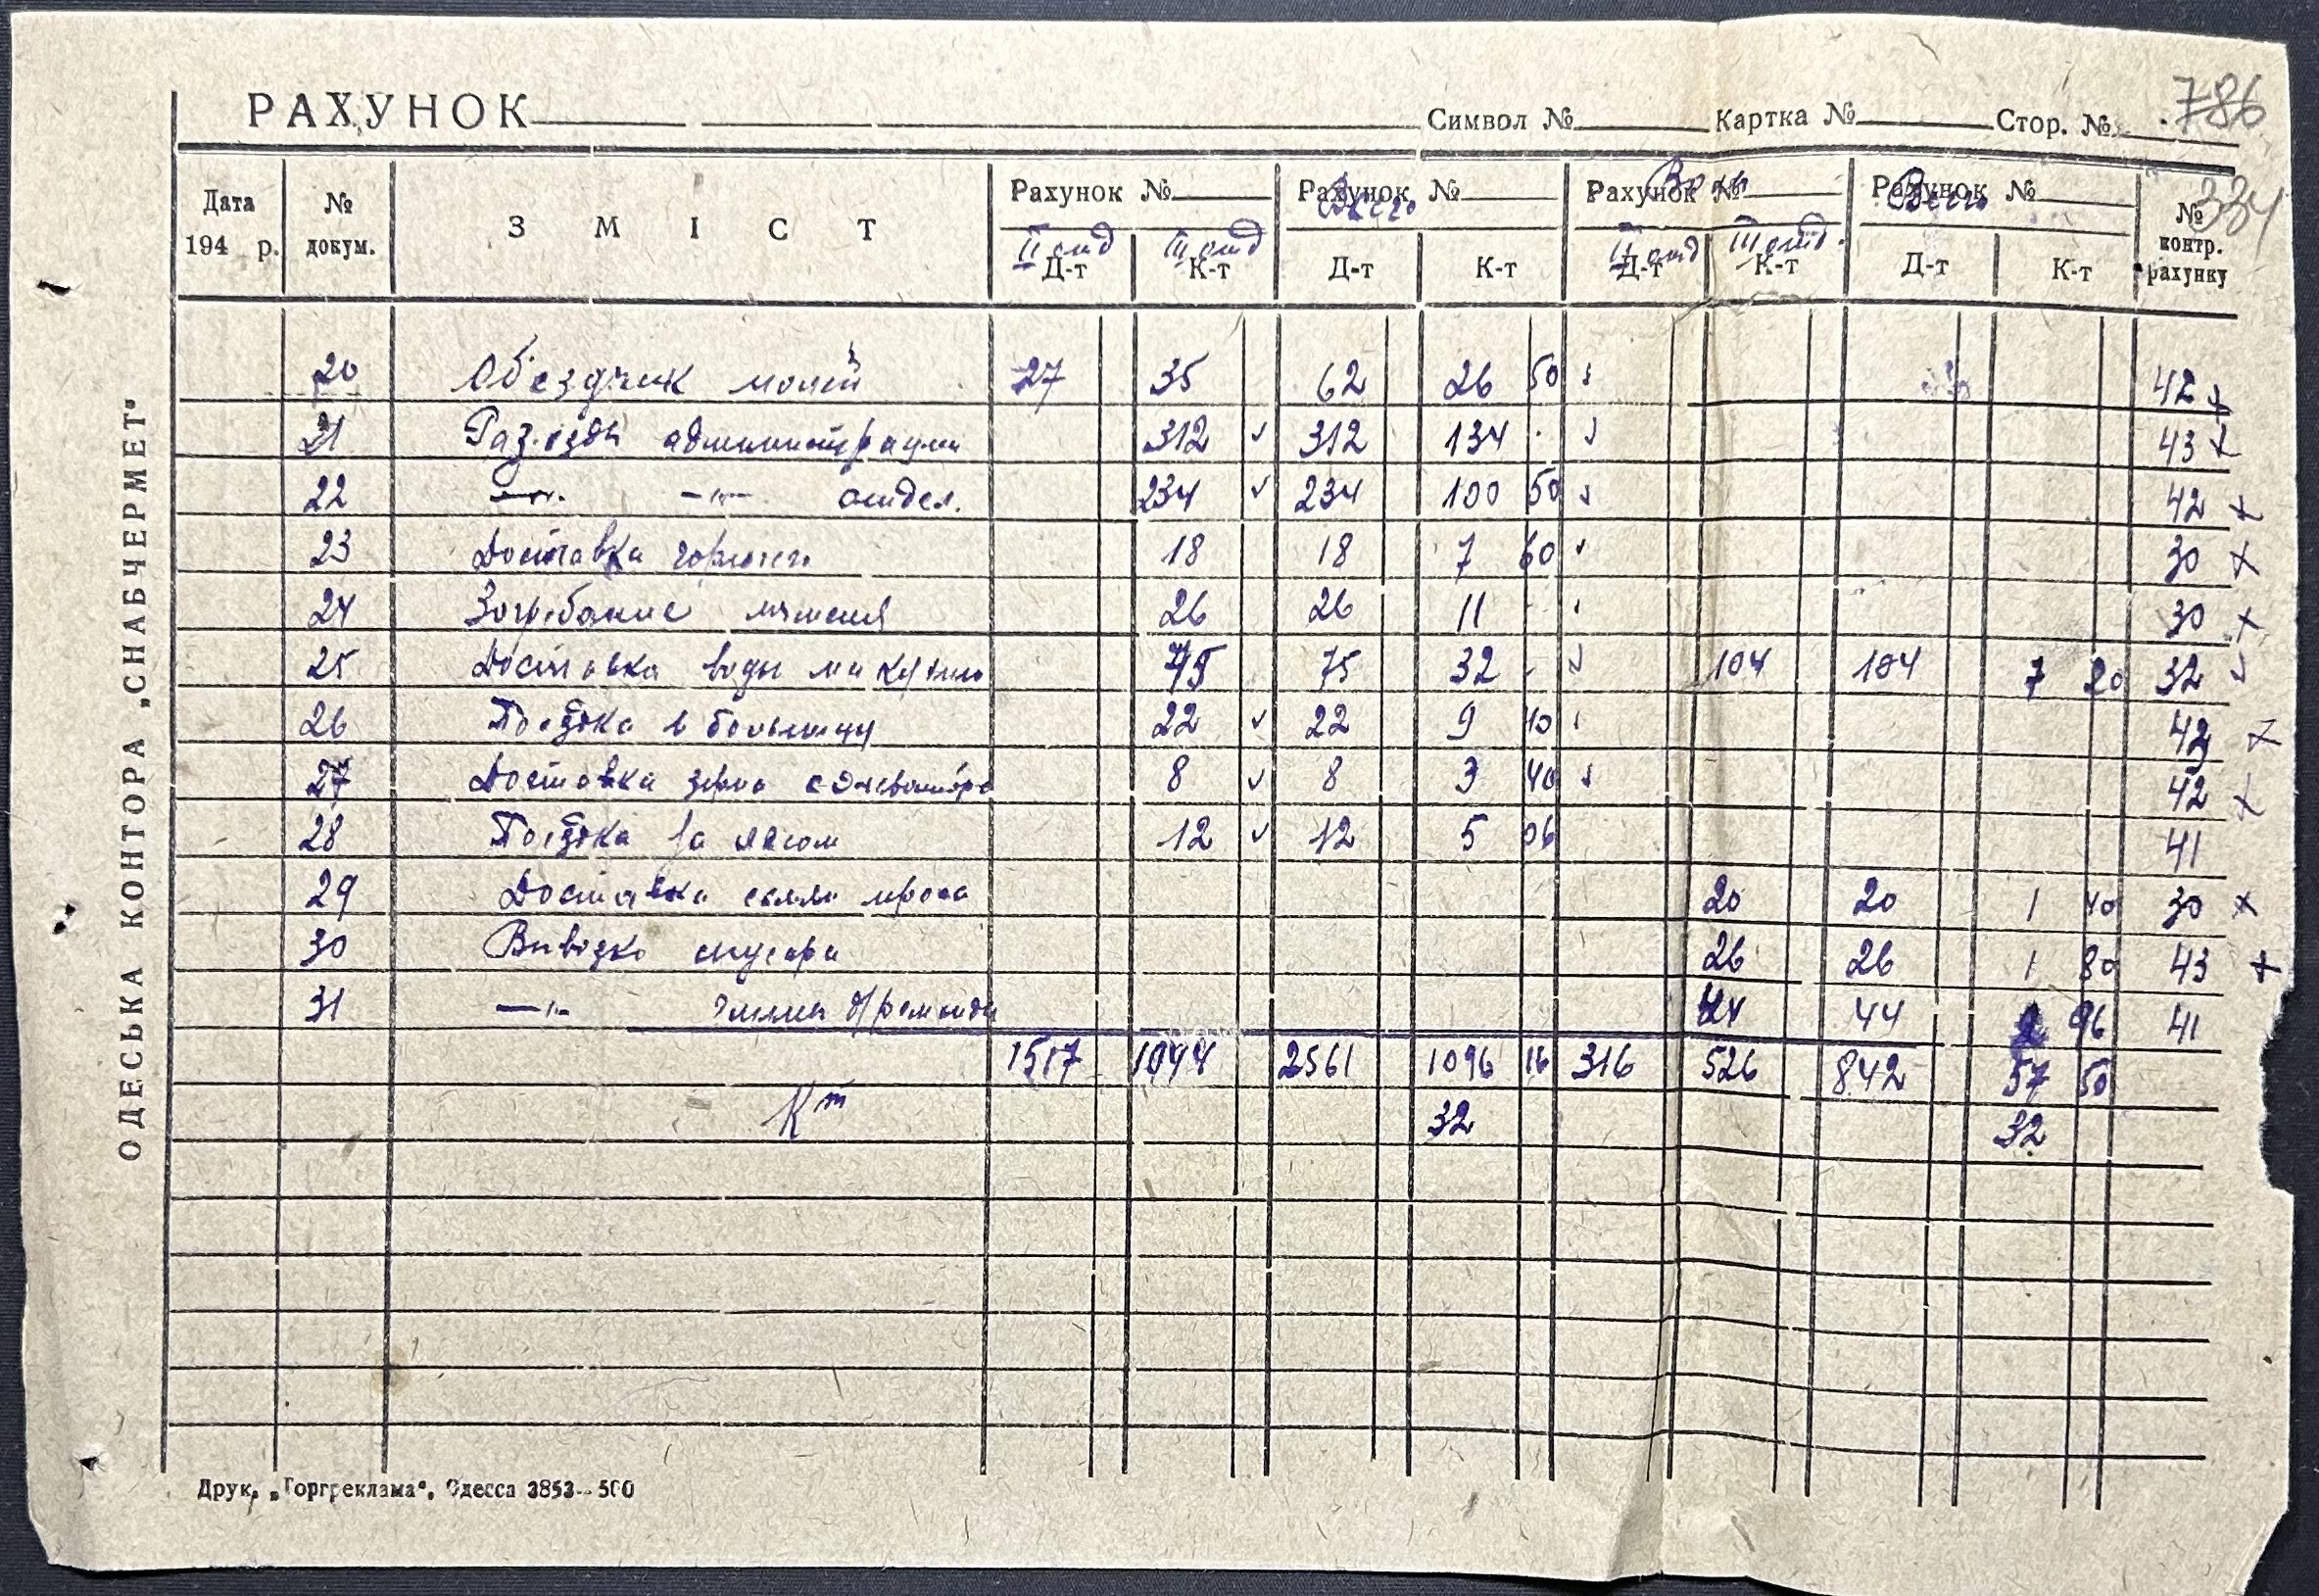 786
РАХУНОК Символ № Картка № Стор. №
334
Дата 194 р. № докум. ЗМІСТ Рахунок № Рахунок № Рахунок № Рахунок № № контр. рахунку
Всего Волы Всего
II отд III отд II отд III отд.
Д-т К-т Д-т К-т Д-т К-т Д-т К-т
20 Объездчик полей 27 35 62 26 50 42
21 Раз.езды администрации 312 312 134 43
22 —"— —"— отдел. 234 234 100 50 42
23 Доставка горючего 18 18 7 60 30
24 Загребание 26 26 11 30
25 Доставка воды на кухню 75 75 32 104 104 7 20 32
26 Поездка в больницу 22 22 9 40 42
27 Доставка зерна с элеватора 8 8 3 40 42
28 Поездка за лесом 12 12 5 06 41
29 Доставка семян проса 20 20 1 40 30
30 Вывозка мусора 26 26 1 80 43
31 —"— глины д/ремонта 44 44 96 41
1517 1044 2561 1096 16 316 526 842 57 50
Кт 32 32
ОДЕСЬКА КОНТОРА „СНАБЧЕРМЕТ"
Друк. „Торгреклама", Одесса 3853—500